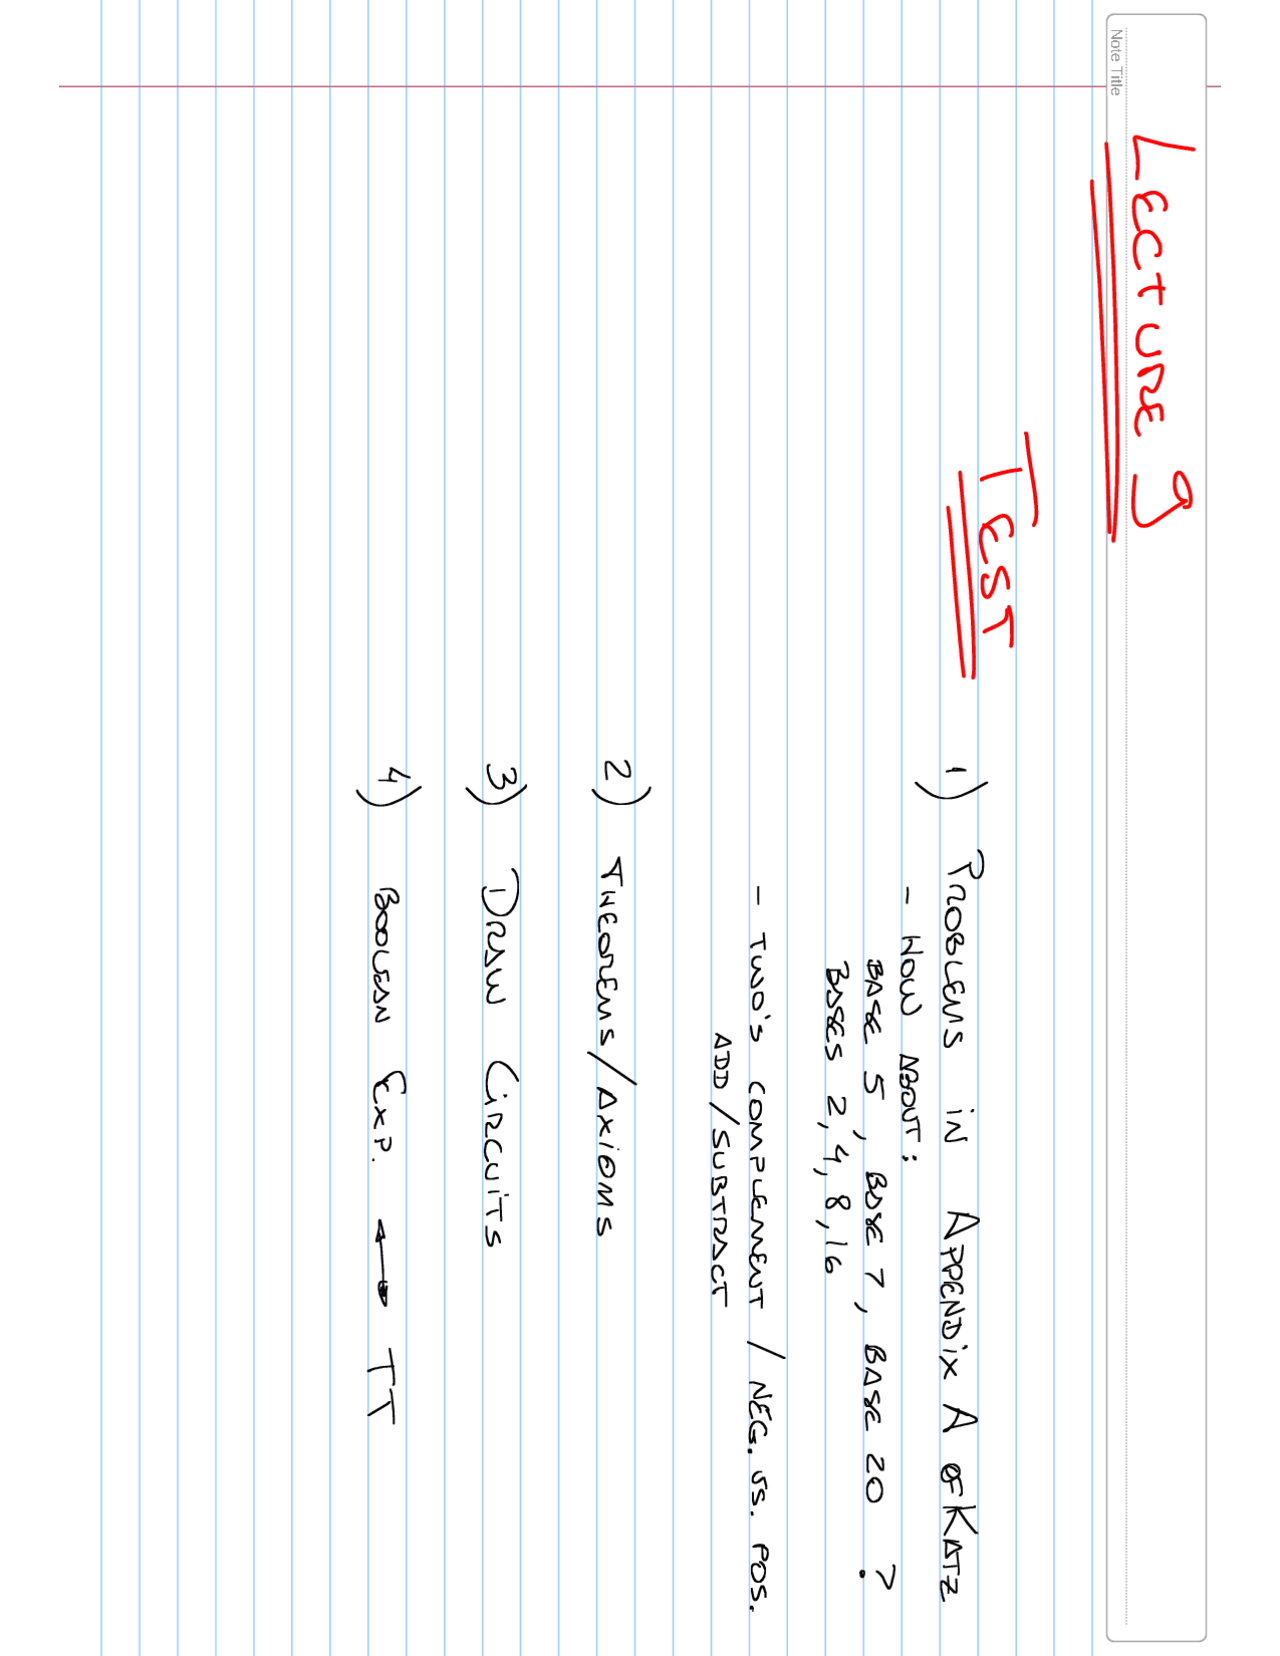 Note Title
LECTURE 9
TEST
1) PROBLEMS IN APPENDIX A OF KATZ
- HOW ABOUT:
BASE 5, BASE 7, BASE 20 ?
BASES 2, 4, 8, 16
- TWO'S COMPLEMENT / NEG. VS. POS.
ADD / SUBTRACT
2) THEOREMS / AXIOMS
3) DRAW CIRCUITS
4) BOOLEAN EXP. ↔ TT